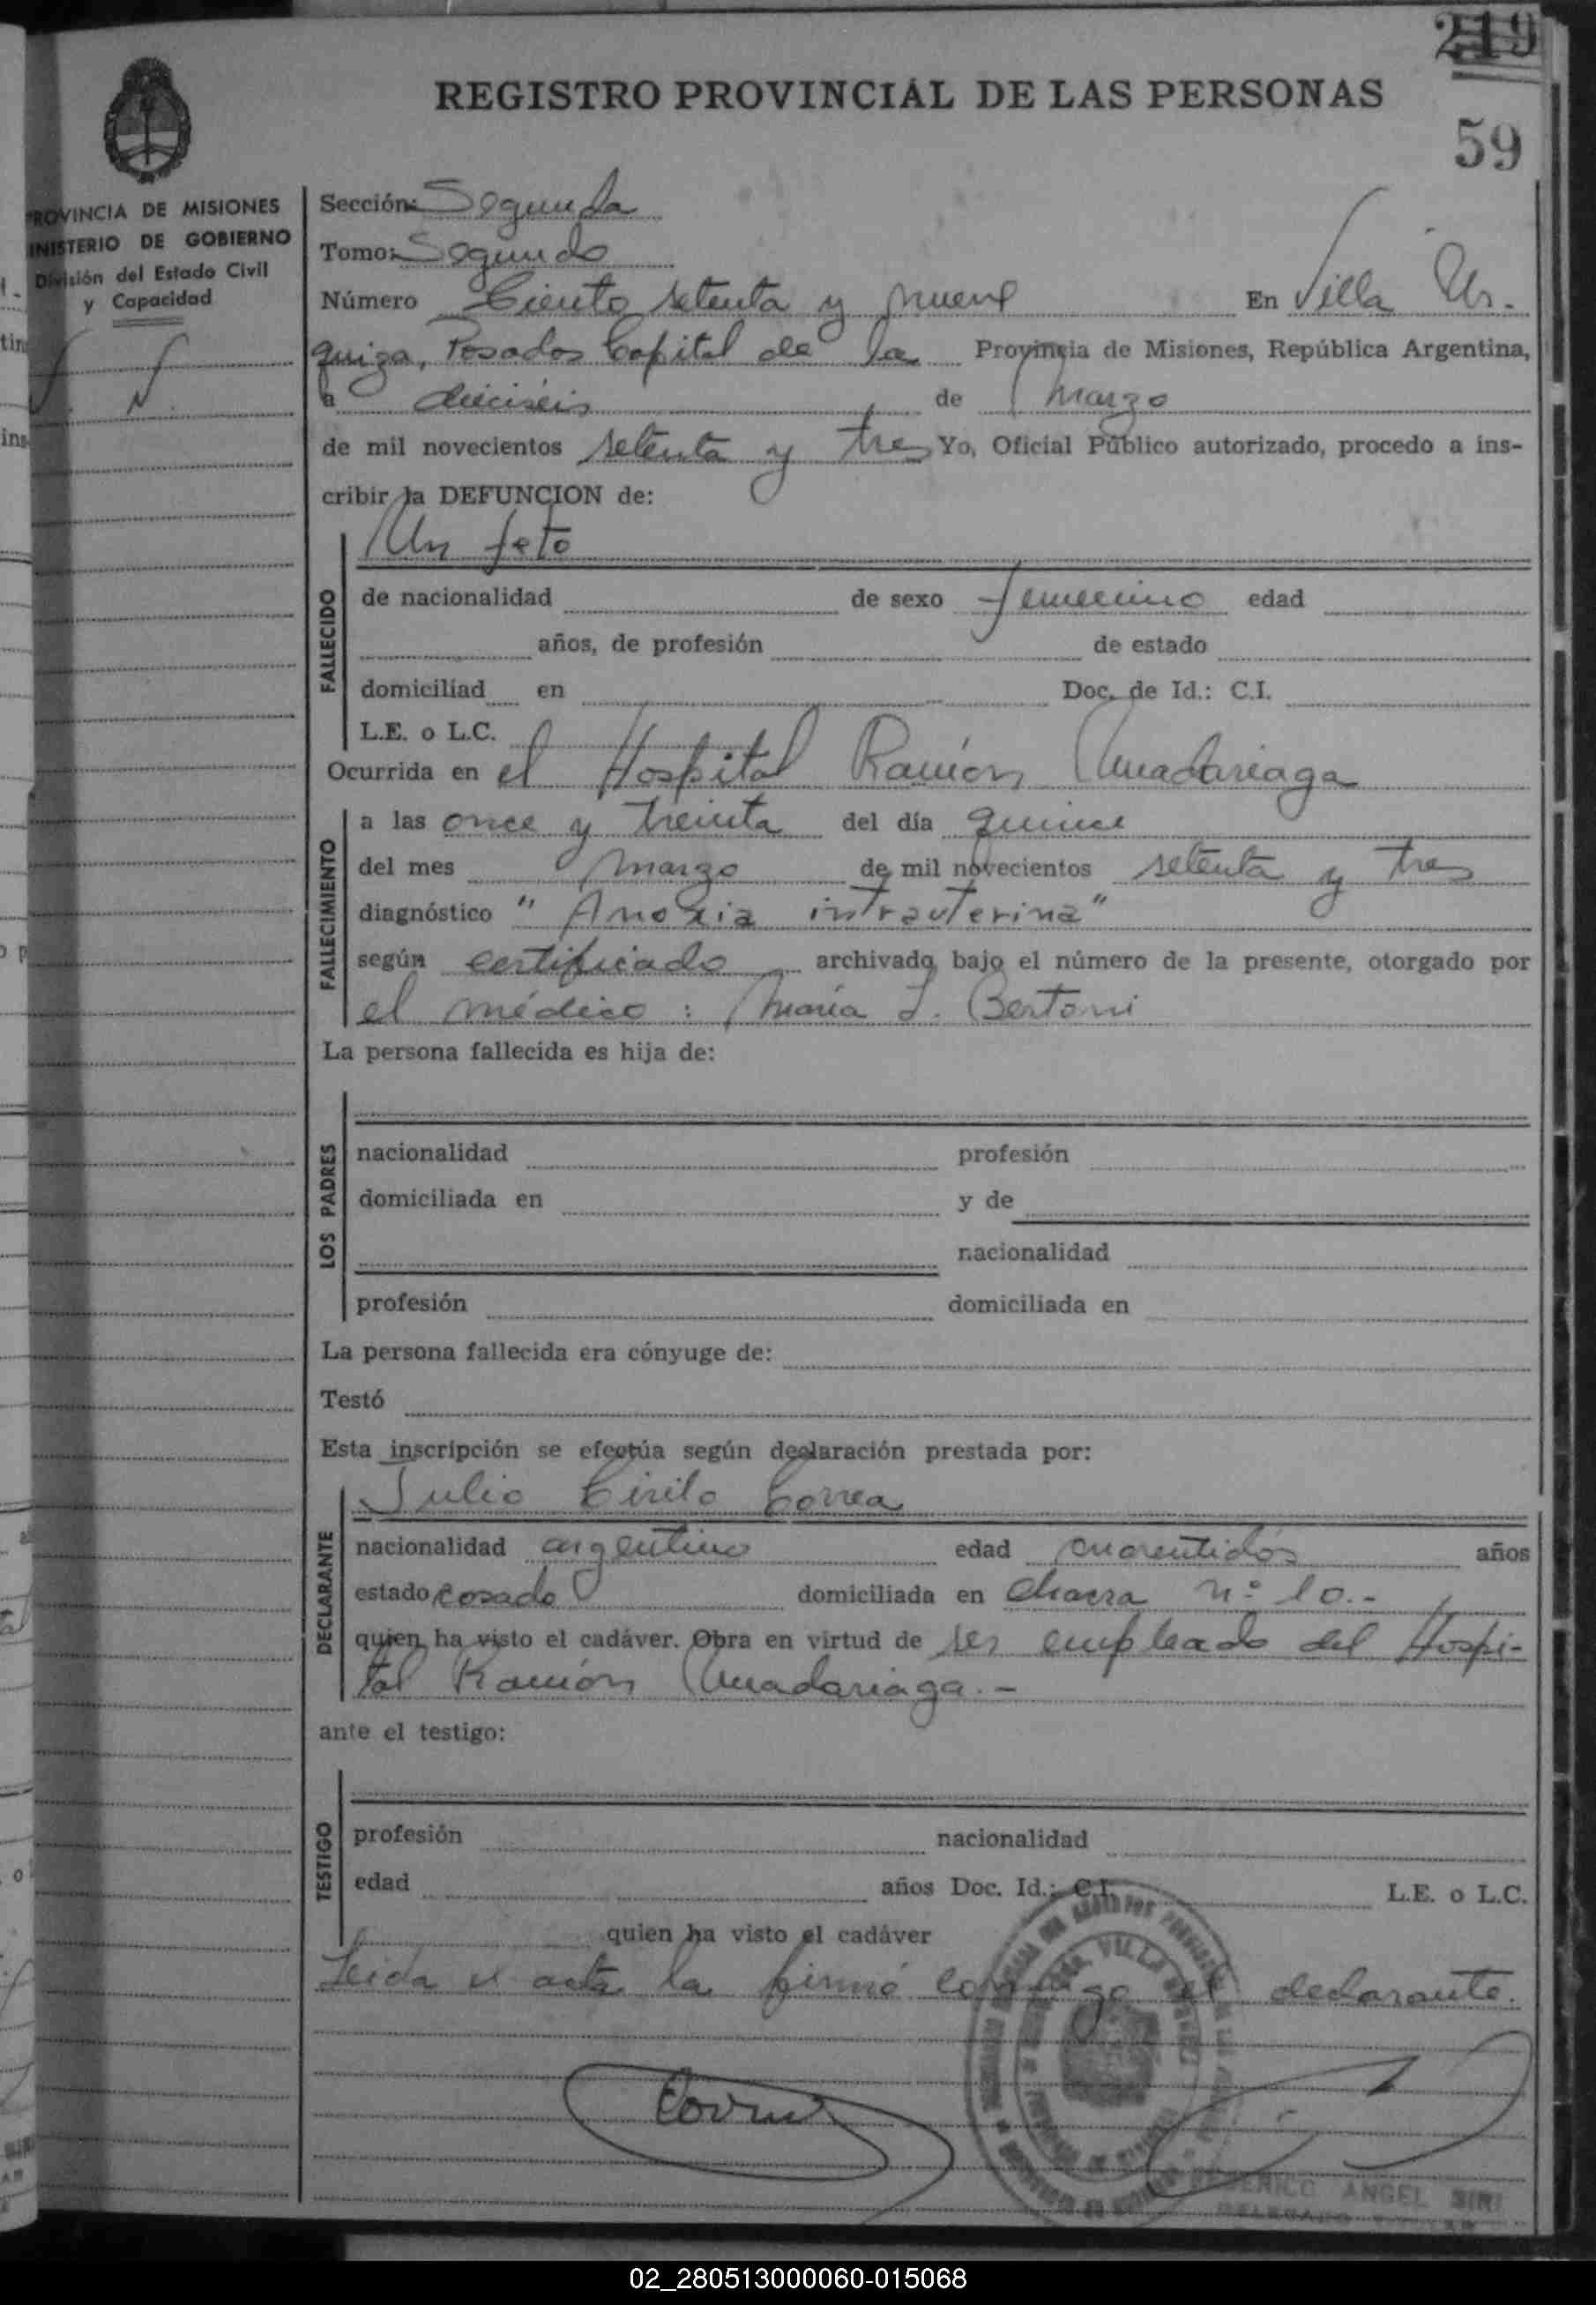 219
REGISTRO PROVINCIAL DE LAS PERSONAS
59
PROVINCIA DE MISIONES
MINISTERIO DE GOBIERNO
División del Estado Civil
y Capacidad
Sección: Segunda
Tomo: Segundo
Número Ciento setenta y nueve En Villa Ur-
quiza, Posadas Capital de la Provincia de Misiones, República Argentina,
a dieciseis de Marzo
de mil novecientos setenta y tres Yo, Oficial Público autorizado, procedo a ins-
cribir la DEFUNCION de:
Un feto
FALLECIDO
de nacionalidad de sexo femenino edad
años, de profesión de estado
domiciliad en Doc. de Id.: C.I.
L.E. o L.C.
Ocurrida en el Hospital Ramón Madariaga
FALLECIMIENTO
a las once y treinta del día quince
del mes Marzo de mil novecientos setenta y tres
diagnóstico " Anoxia intrauterina"
según certificado archivado bajo el número de la presente, otorgado por
el médico : María I. Bertoni
La persona fallecida es hija de:
LOS PADRES
nacionalidad profesión
domiciliada en y de
nacionalidad
profesión domiciliada en
La persona fallecida era cónyuge de:
Testó
Esta inscripción se efectúa según declaración prestada por:
DECLARANTE
Julio Cirilo Correa
nacionalidad argentino edad cuarentidós años
estado casado domiciliada en Chacra nº 10.-
quien ha visto el cadáver. Obra en virtud de ser empleado del Hospi-
tal Ramón Madariaga.-
ante el testigo:
TESTIGO
profesión nacionalidad
edad años Doc. Id.: C.I. L.E. o L.C.
quien ha visto el cadáver
Leida el acta la firmó conmigo el declarante.
VILLA
ANGEL SIRI
02_280513000060-015068